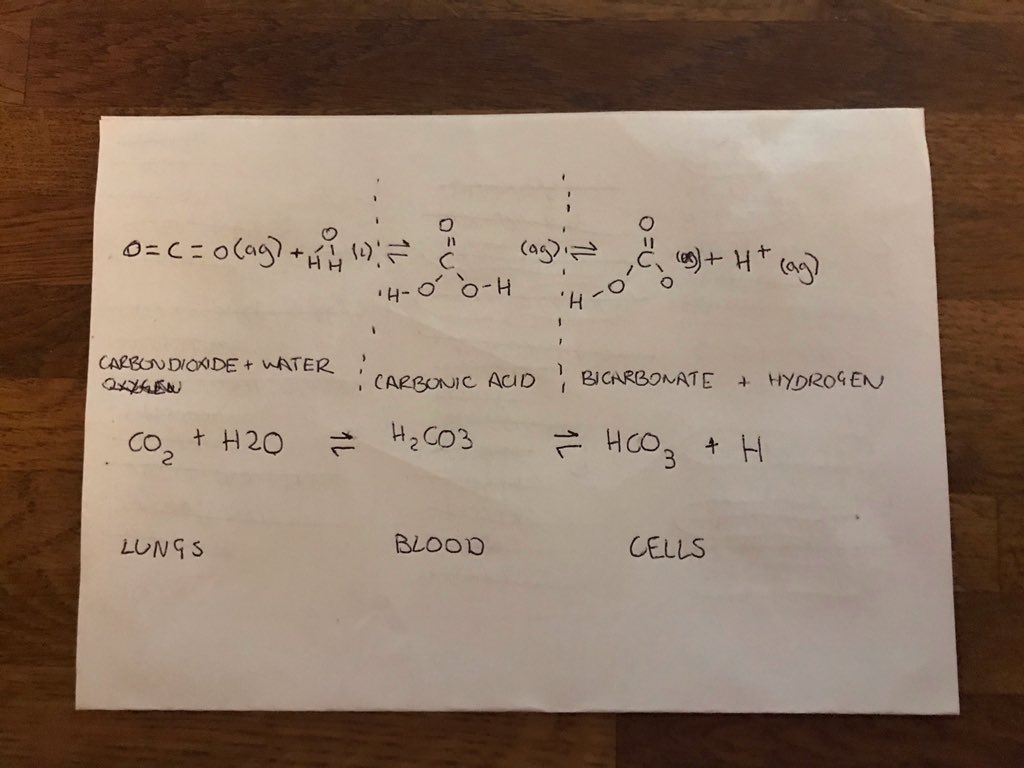 O=C=O(aq) + H O H (l) ⇌ H-O C O O-H (aq) ⇌ H-O C O O (aq) + H⁺ (aq)
CARBONDIOXIDE + WATER
CARBONIC ACID BICARBONATE + HYDROGEN
CO₂ + H2O ⇌ H₂CO3 ⇌ HCO₃ + H
LUNGS BLOOD CELLS